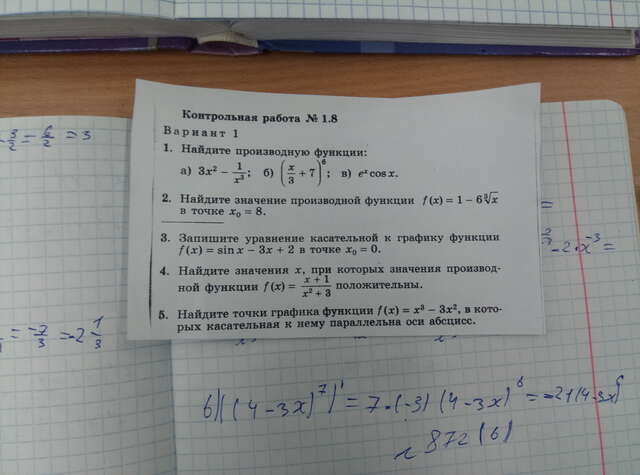 Контрольная работа № 1.8
Вариант 1
1. Найдите производную функции:
а) 3x² − 1/x³; б) (x/3 + 7)⁶; в) eˣ cos x.
2. Найдите значение производной функции f(x) = 1 − 6∛x
в точке x₀ = 8.
3. Запишите уравнение касательной к графику функции
f(x) = sin x − 3x + 2 в точке x₀ = 0.
4. Найдите значения x, при которых значения производ-
ной функции f(x) = (x + 1)/(x² + 3) положительны.
5. Найдите точки графика функции f(x) = x³ − 3x², в кото-
рых касательная к нему параллельна оси абсцисс.
= 6/2 = 3
= −7/3 = −2 1/3
− 2·x⁻³ =
б) ((4 − 3x)⁷)' = 7·(−3)(4 − 3x)⁶ = −21(4 − 3x)⁶
872 (б)